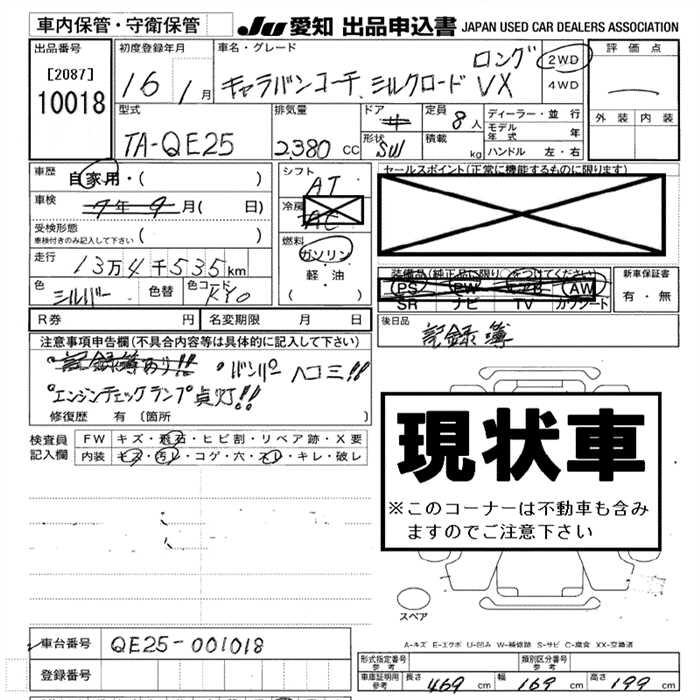 車内保管・守衛保管
JU 愛知 出品申込書 JAPAN USED CAR DEALERS ASSOCIATION
出品番号
[2087]
10018
初度登録年月
16 1月
車名・グレード
キャラバンコーチ シルクロード VX ロング
2WD
4WD
評価点
外装 内装
型式
TA-QE25
排気量
2,380 CC
ドア
4
形状
SW
定員
8人
積載
kg
ディーラー・並行
モデル年式 年
ハンドル 左・右
車歴
自家用・( )
車検
7年9月( 日)
受検形態
車検付きのみ記入して下さい ( )
走行
13万4千535km
色
シルバー
色替
色コード
KY0
シフト
AT
冷房
AC
燃料
ガソリン
軽・油
( )
セールスポイント(正常に機能するものに限ります)
装備品(純正品に限り○をつけてください)
PS PW エアB AW
SR ナビ TV カワシート
新車保証書
有・無
R券 円
名変期限 月 日
後日品
記録簿
注意事項申告欄(不具合内容等は具体的に記入して下さい)
記録簿あり!! バンパーヘコミ!!
エンジンチェックランプ点灯!!
修復歴 有 〔箇所 〕
検査員記入欄
FW キズ・飛石・ヒビ割・リペア跡・X要
内装 キズ・汚レ・コゲ・穴・スレ・キレ・破レ
現状車
※このコーナーは不動車も含み
ますのでご注意下さい
スペア
A-キズ E-エクボ U-凹み W-補修跡 S-サビ C-腐食 XX-交換済
車台番号
QE25-001018
登録番号
形式指定番号
参考
類別区分番号
参考
車庫証明用
参考
長さ 469 cm 幅 169 cm 高さ 199 cm